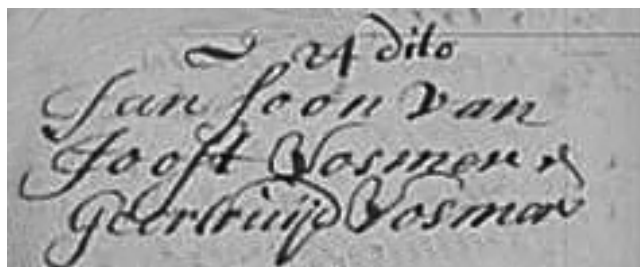 24 dito
Jan soon van
Joost Vosmer &
Geertruijd Vosmer